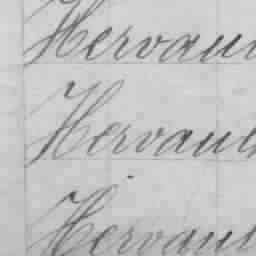 Hervau
Hervault
Hervaul